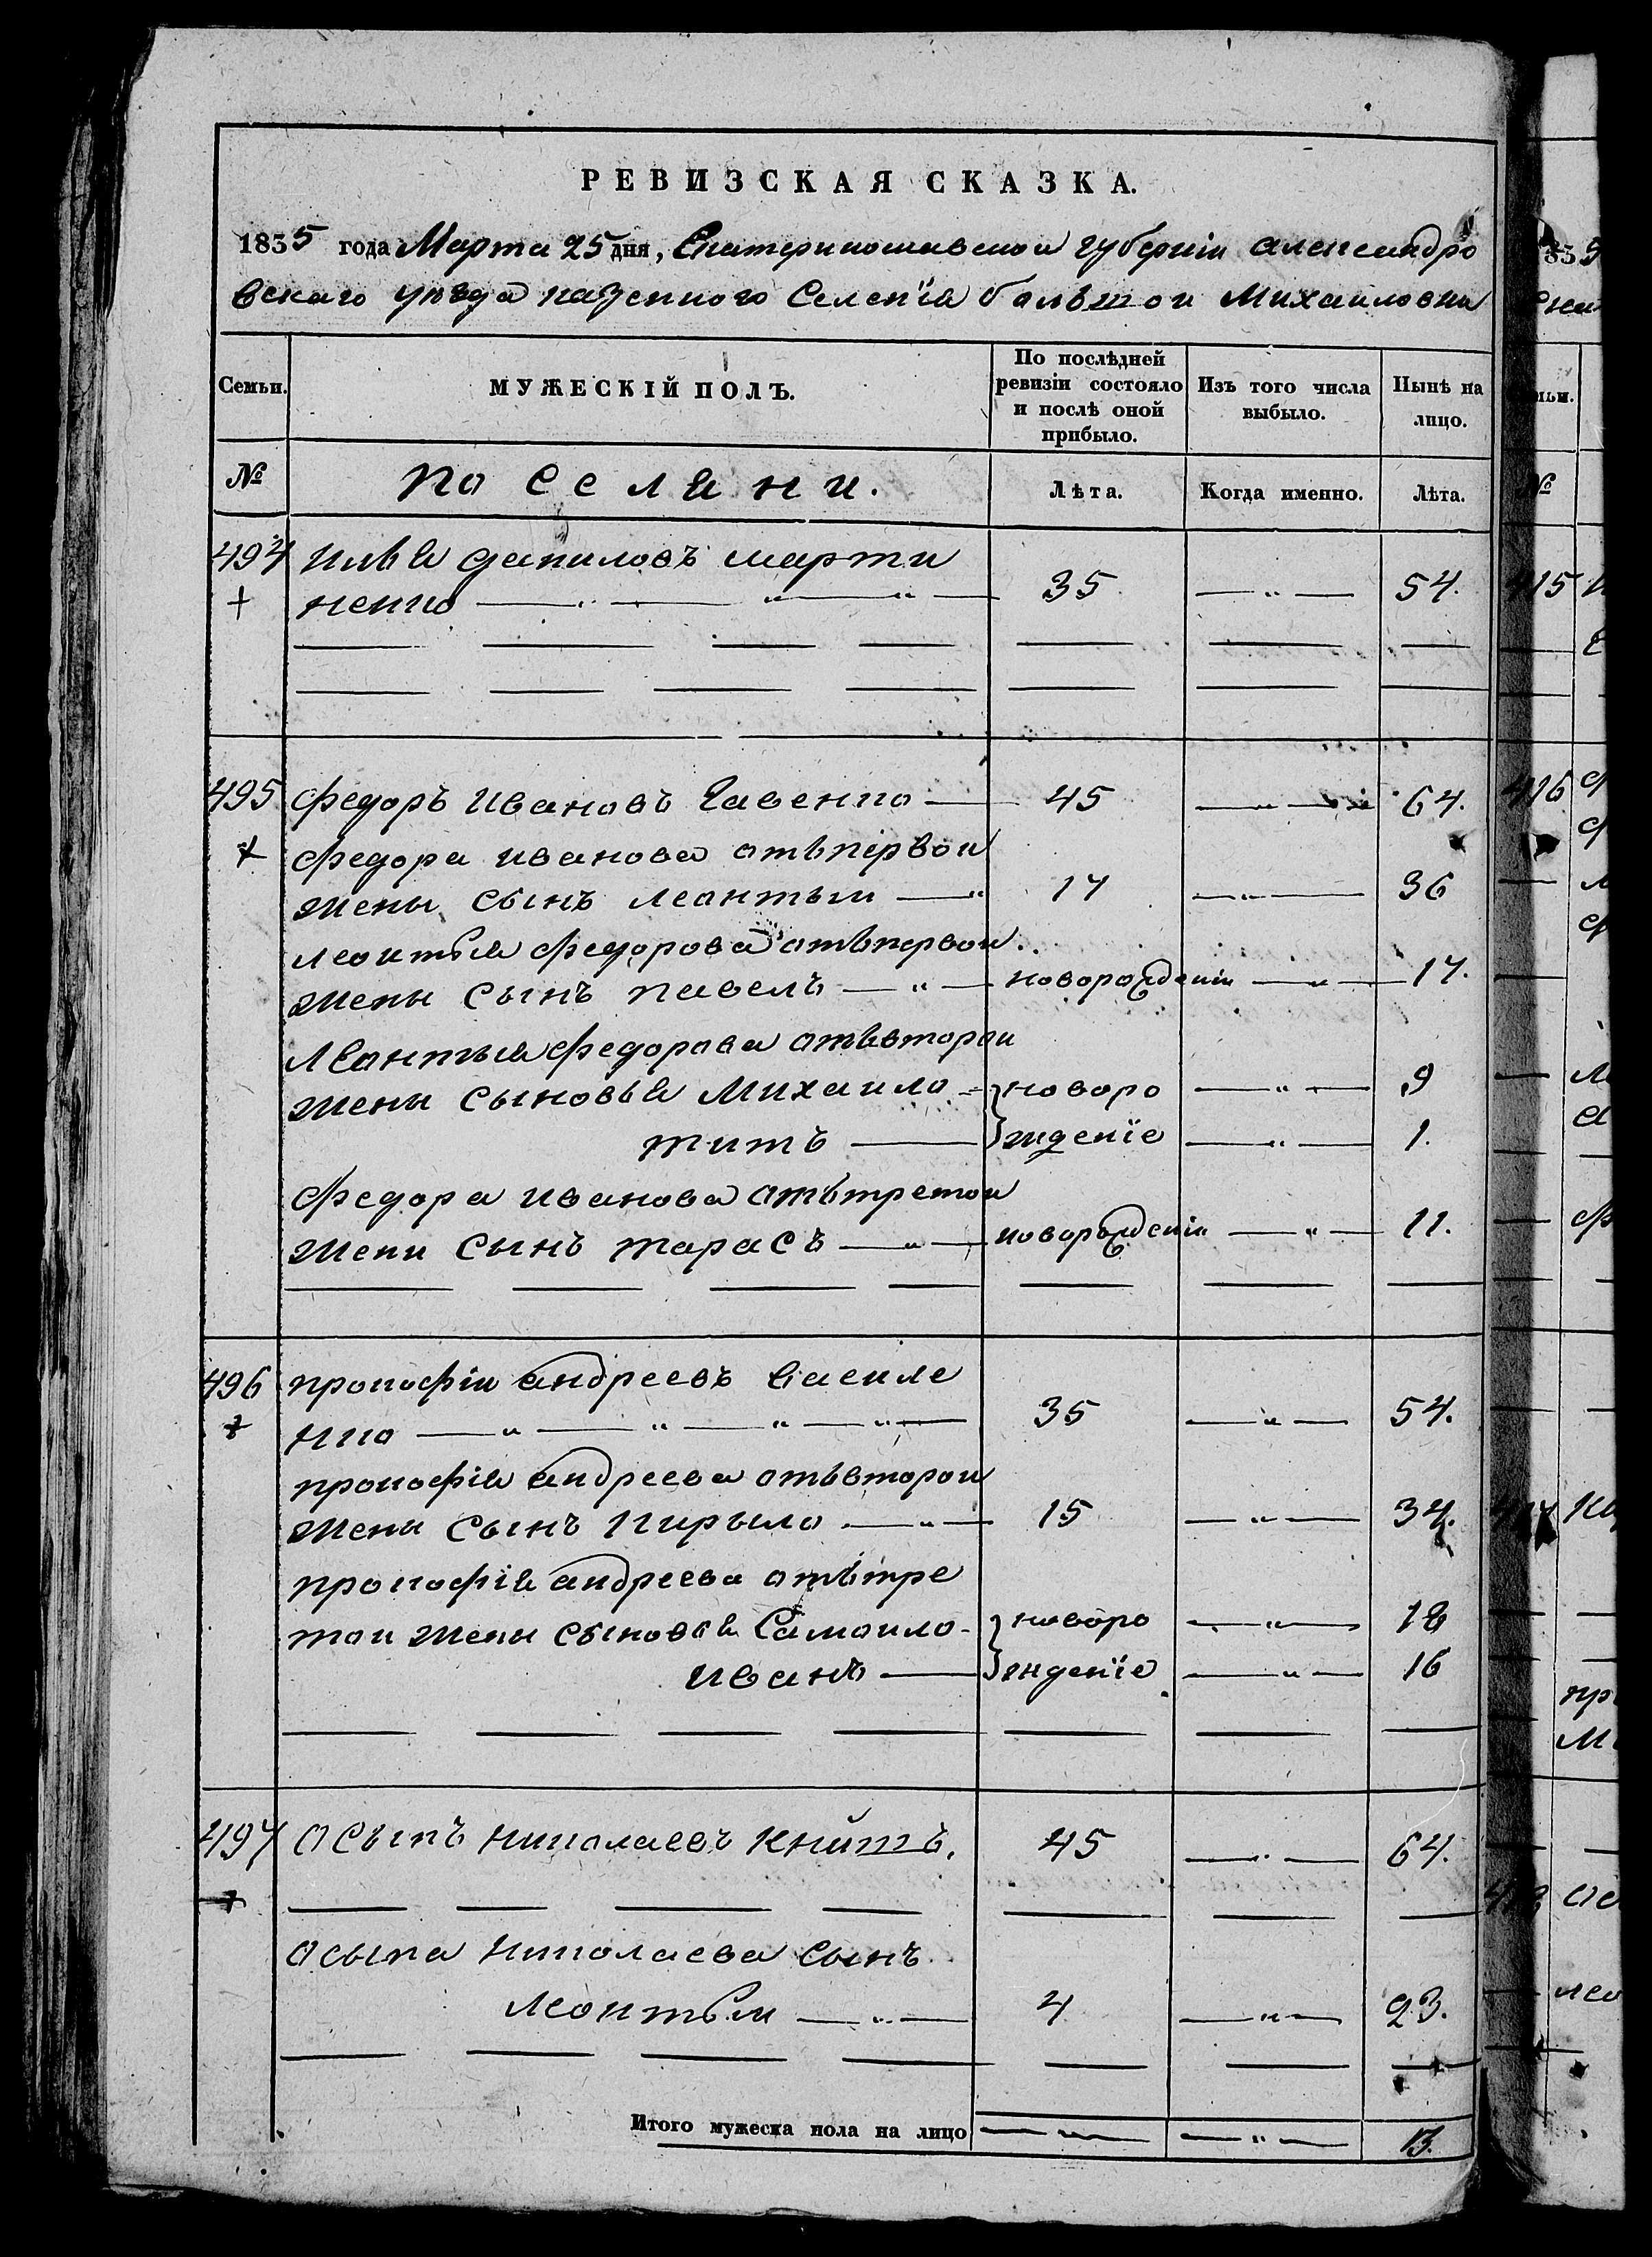 РЕВИЗСКАЯ СКАЗКА.
1835 года Марта 25 дня, Екатеринославской губерніи александро
вскаго уезда казенного Селенїя большои Михаиловки
Семьи.
МУЖЕСКІЙ ПОЛЪ.
По послѣдней ревизіи состояло и послѣ оной прибыло.
Изъ того числа выбыло.
Нынѣ на лицо.
№
поселяни.
Лѣта.
Когда именно.
Лѣта.
494 Илья даниловъ марти
+ ненко 35 54.
495 федоръ ивановъ Савенко 45 64.
федора иванова отъпервои
жены сынъ леонтъи 17 36
леонтъя федорова отъпервои
жены сынъ павелъ новорожденіи 17.
леонтъя федорова отъвтораи
жени сыновья михаило новоро 9
титъ ждение 1.
федора иванова отътретои
жени сынъ тарасъ новорожденіи 11.
496 прокофіи андреевъ василе
нко 35 54.
прокофія андреева отъвтораи
жени сынъ кирыло 15 34.
прокофія андреева отътре
тои жени сыновья Самоило новоро 18
иванъ жденїе 16
497 осыпъ николаевъ книтъ. 45 64.
осыпа николаева сынъ
леонтъи 4 23.
Итого мужеска пола на лицо 13.